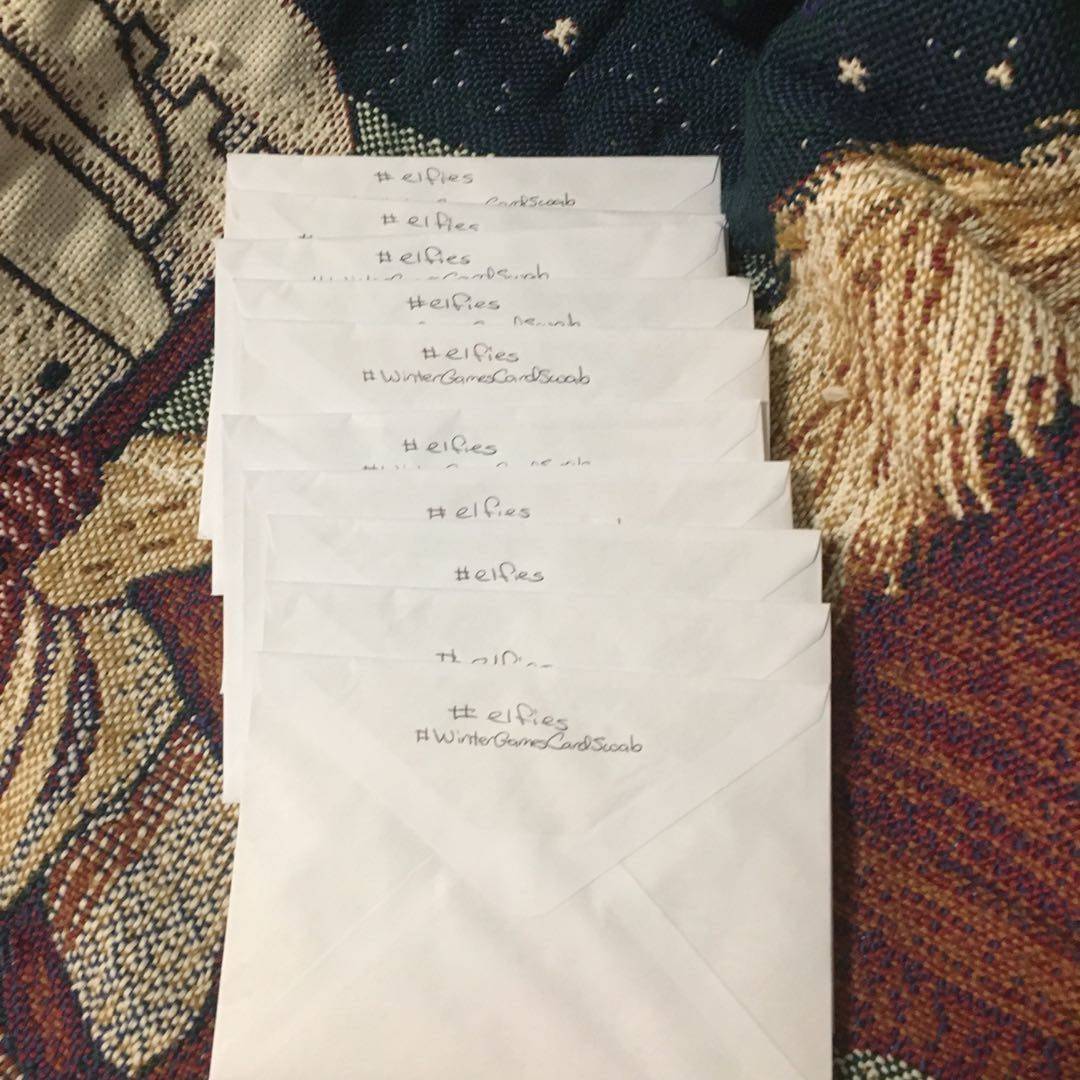 #elfies
CardSwab
#elfies
#elfies
CardSwab
#elfies
#elfies
#WinterGamesCardSwab
#elfies
#elfies
#elfies
#elfies
#WinterGamesCardSwab